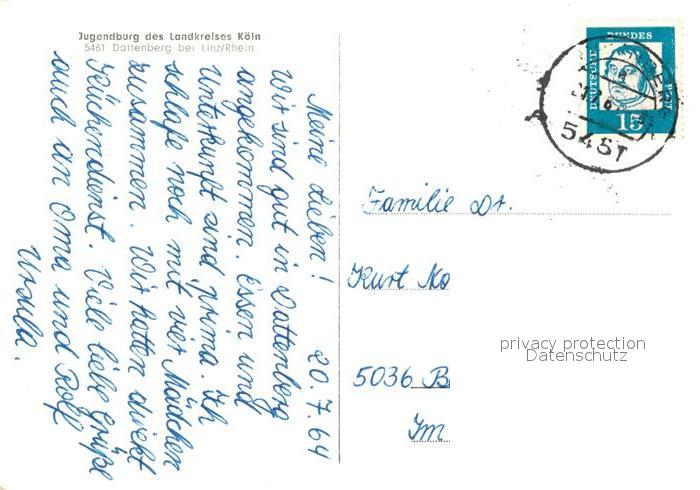 Jugendburg des Landkreises Köln
5461 Dattenberg bei Linz/Rhein
20.7.64
Meine Lieben!
Wir sind gut in Dattenberg
angekommen. Essen und
Unterkunft sind prima. Ich
schlafe noch mit vier Mädchen
zusammen. Wir hatten direkt
Küchendienst. Viele liebe Grüße
auch an Oma und Rolf
Ursula.
DEUTSCHE
BUNDES
POST
15
5461
Familie Dr.
Kurt Mo
5036 B
Im
privacy protection
Datenschutz